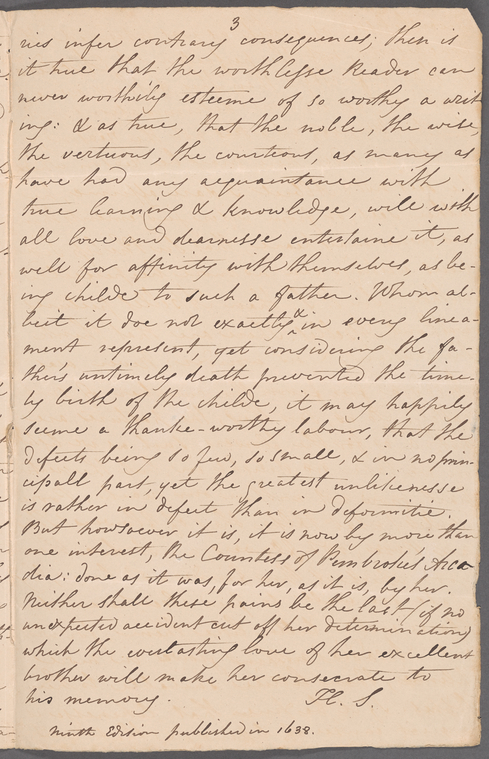 3
ries infer contrary consequences; then is
it true that the worthlesse Reader can
never worthily esteeme of so worthy a writ
ing: & as true, that the noble, the wise,
the vertuous, the courtious, as many as
have had any acquaintance with
true learning & knowledge, will with
all love and dearnesse entertaine it, as
well for affinity with themselves, as be-
ing childe to such a father. Whom al-
beit it doe not exactly & in every linea-
ment represent, yet considering the fa-
thers untimely death prevented the time-
ly birth of the childe, it may happily
seeme a thanke-worthy labour, that the
defects being so few, so small, & in no prin-
cipall part, yet the greatest unlikenesse
is rather in defect than in deformitie.
But howsoever it is, it is now by more than
one interest, the Countess of Pembroke's Arca
dia: done as it was, for her, as it is, by her.
Neither shall these pains be the last (if no
unexpected accident cut off her determination)
which the everlasting love of her excellent
brother will make her consecrate to
his memory. H. S.
Ninth Edition published in 1638.